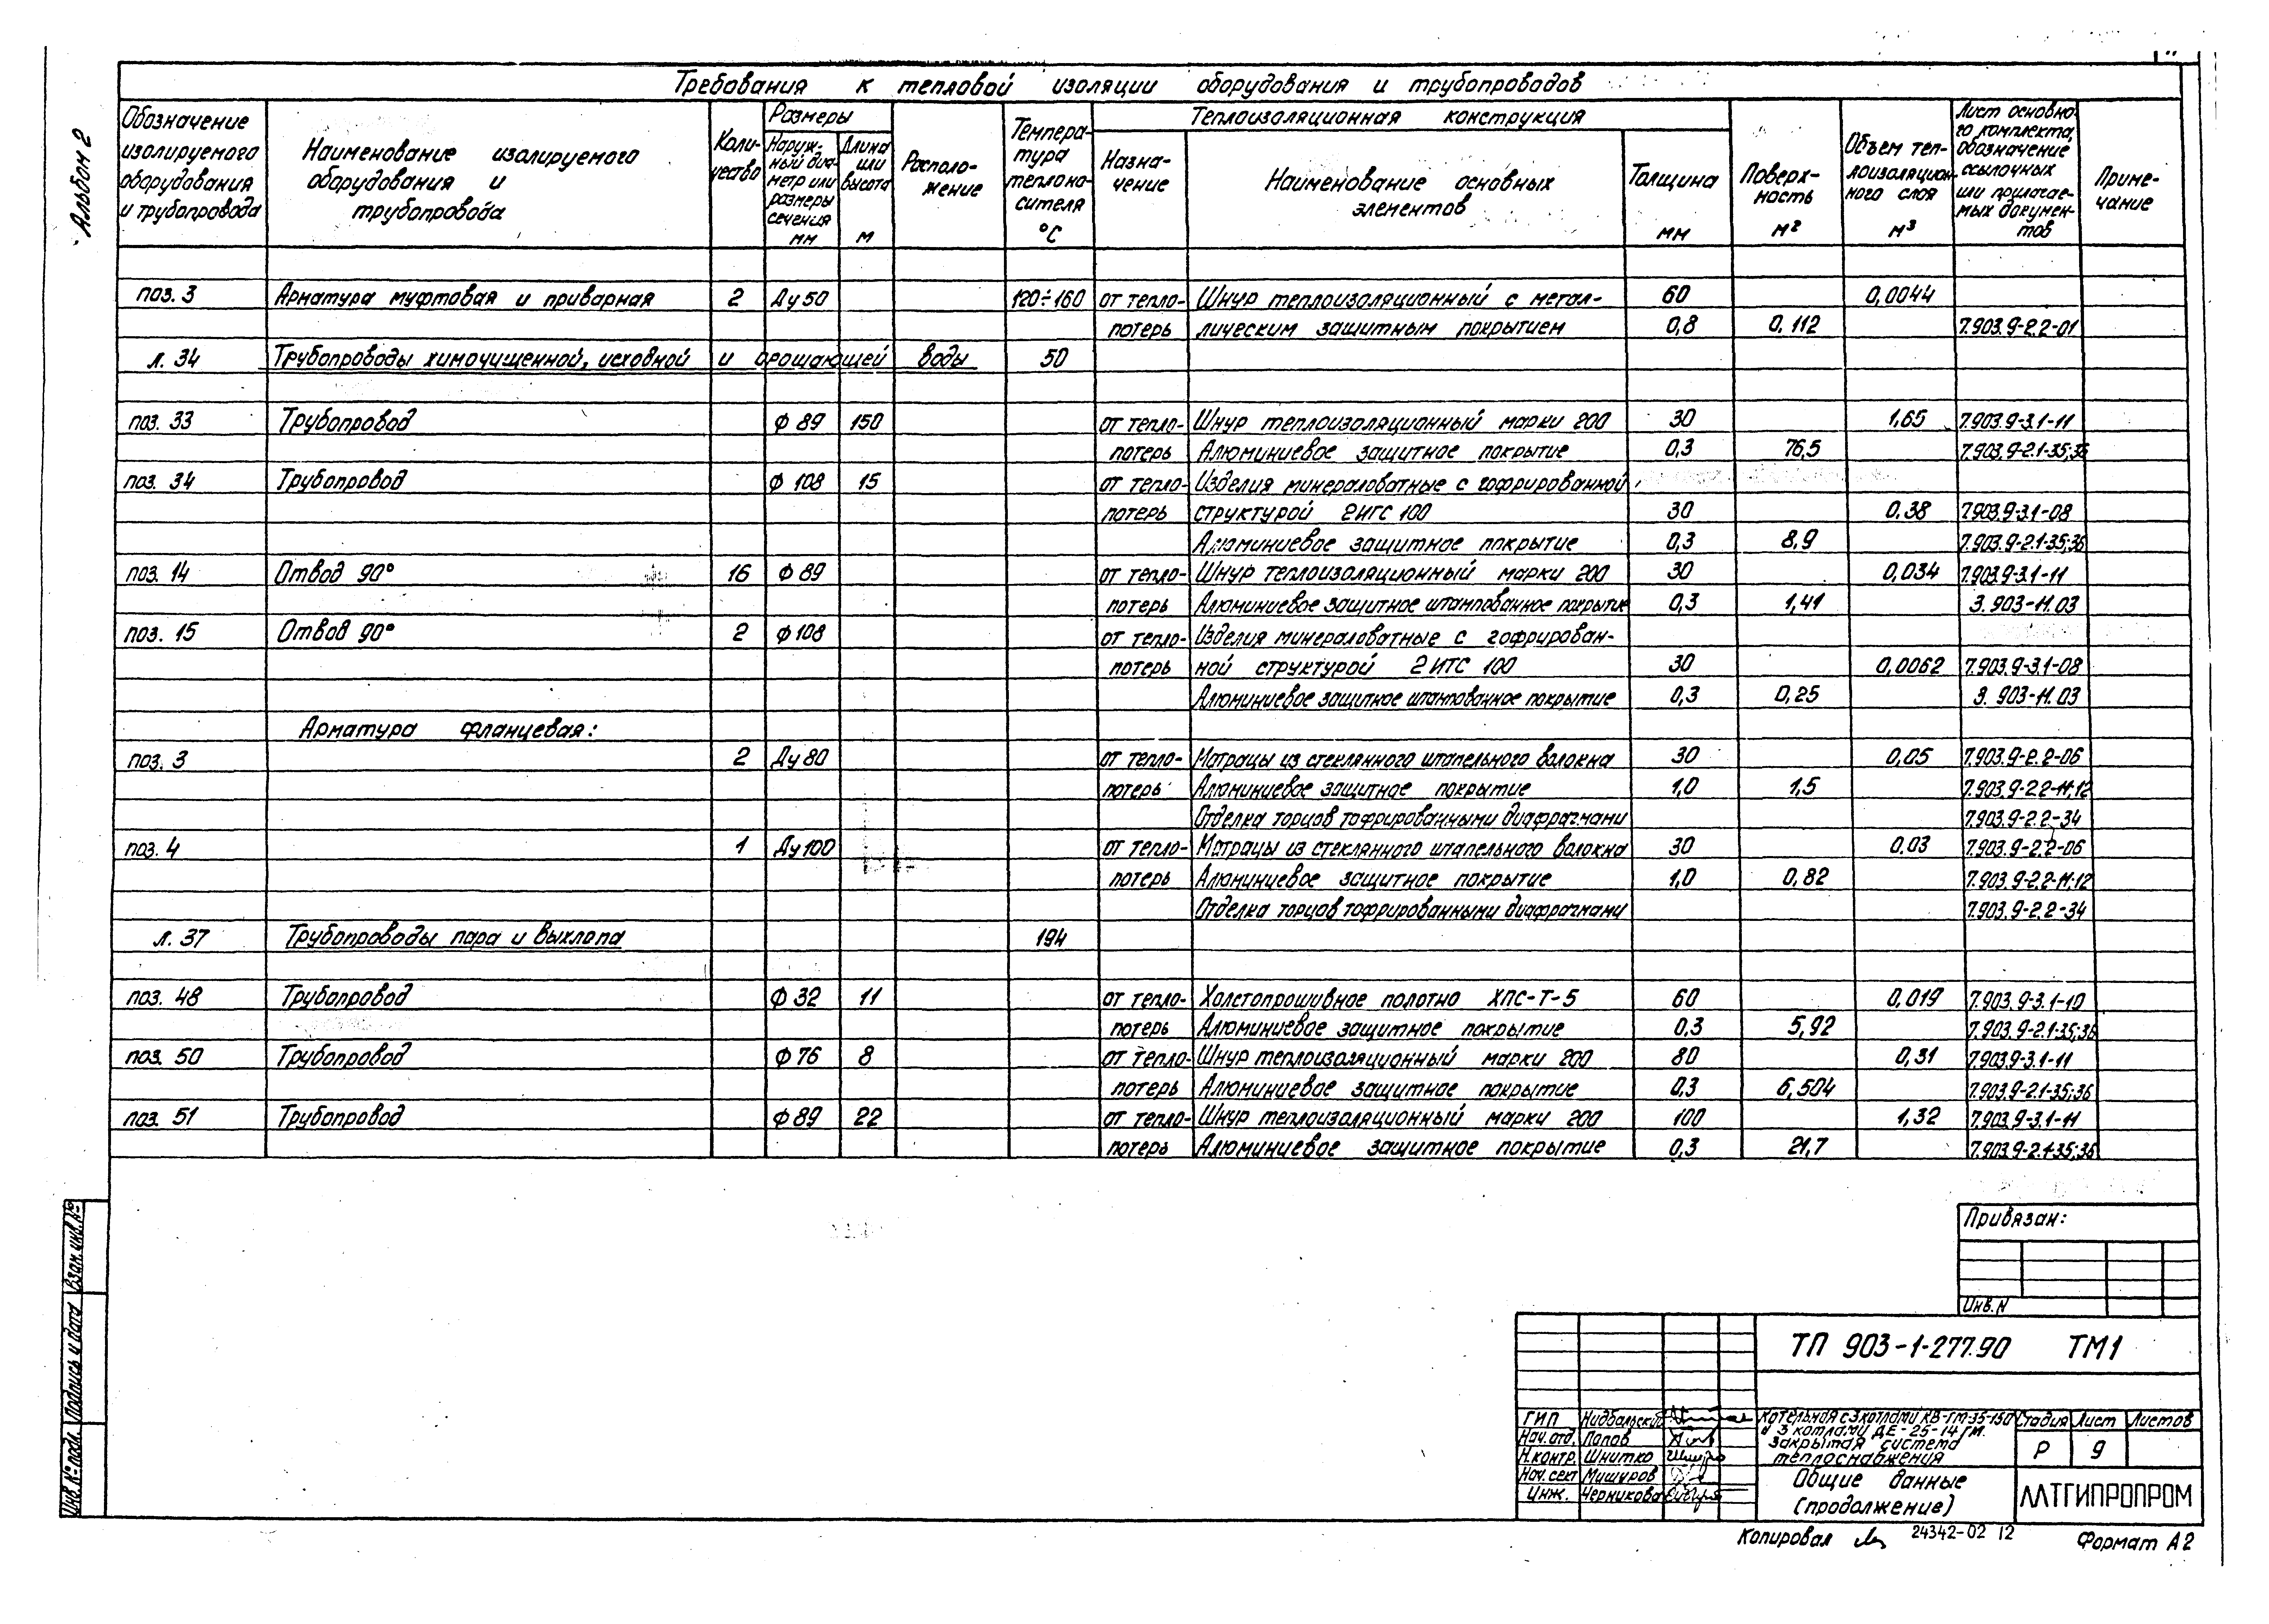 Альбом 2
Требования к тепловой изоляции оборудования и трубопроводов
Обозначение изолируемого оборудования и трубопровода
Наименование изолируемого оборудования и трубопровода
Количество
Размеры
Наружный диаметр или размеры сечения мм
Длина или высота м
Расположение
Температура теплоносителя °С
Теплоизоляционная конструкция
Назначение
Наименование основных элементов
Толщина мм
Поверхность м²
Объем теплоизоляционного слоя м³
Лист основного комплекта, обозначение ссылочных или прилагаемых документов
Примечание
поз. 3 Арматура муфтовая и приварная 2 Ду 50 120÷160 от тепло- Шнур теплоизоляционный с метал- 60 0,0044
потерь лическим защитным покрытием 0,8 0,112 7.903.9-2.2-01
л. 34 Трубопроводы химочищенной, исходной и орошающей воды 50
поз. 33 Трубопровод Ф 89 150 от тепло- Шнур теплоизоляционный марки 200 30 1,65 7.903.9-3.1-11
потерь Алюминиевое защитное покрытие 0,3 76,5 7.903.9-2.1-35;36
поз. 34 Трубопровод Ф 108 15 от тепло- Изделия минераловатные с гофрированной
потерь структурой 2ИГС 100 30 0,38 7.903.9-3.1-08
Алюминиевое защитное покрытие 0,3 8,9 7.903.9-2.1-35;36
поз. 14 Отвод 90° 16 Ф 89 от тепло- Шнур теплоизоляционный марки 200 30 0,034 7.903.9-3.1-11
потерь Алюминиевое защитное штампованное покрытие 0,3 1,41 3.903-11.03
поз. 15 Отвод 90° 2 Ф 108 от тепло- Изделия минераловатные с гофрирован-
потерь ной структурой 2ИТС 100 30 0,0062 7.903.9-3.1-08
Алюминиевое защитное штампованное покрытие 0,3 0,25 3.903-11.03
Арматура фланцевая:
поз. 3 2 Ду 80 от тепло- Матрацы из стеклянного штапельного волокна 30 0,05 7.903.9-2.2-06
потерь Алюминиевое защитное покрытие 1,0 1,5 7.903.9-2.2-11;12
Отделка торцов гофрированными диафрагмами 7.903.9-2.2-34
поз. 4 1 Ду 100 от тепло- Матрацы из стеклянного штапельного волокна 30 0.03 7.903.9-2.2-06
потерь Алюминиевое защитное покрытие 1,0 0,82 7.903.9-2.2-11;12
Отделка торцов гофрированными диафрагмами 7.903.9-2.2-34
л. 37 Трубопроводы пара и выхлопа 194
поз. 48 Трубопровод Ф 32 11 от тепло- Холстопрошивное полотно ХПС-Т-5 60 0,019 7.903.9-3.1-10
потерь Алюминиевое защитное покрытие 0,3 5,92 7.903.9-2.1-35;36
поз. 50 Трубопровод Ф 76 8 от тепло- Шнур теплоизоляционный марки 200 80 0,31 7.903.9-3.1-11
потерь Алюминиевое защитное покрытие 0,3 6,504 7.903.9-2.1-35;36
поз. 51 Трубопровод Ф 89 22 от тепло- Шнур теплоизоляционный марки 200 100 1,32 7.903.9-3.1-11
потерь Алюминиевое защитное покрытие 0,3 21,7 7.903.9-2.1-35;36
Инв. № подл. Подпись и дата Взам. инв. №
Привязан:
Инв. N
ТП 903-1-277.90 ТМ1
ГИП Нидбальский
Нач. отд. Попов
Н. контр. Шнитко
Нач. сект Мишуров
Инж. Черникова
Котельная с 3 котлами КВ-ГМ-35-150
и 3 котлами ДЕ-25-14ГМ.
Закрытая система
теплоснабжения
Стадия Лист Листов
Р 9
Общие данные
(продолжение)
ЛАТГИПРОПРОМ
Копировал 24342-02 12 Формат А2